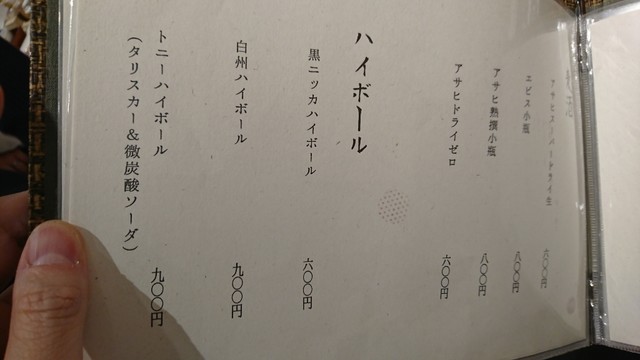 アサヒスーパードライ生 六〇〇円
エビス小瓶 八〇〇円
アサヒ熟撰小瓶 八〇〇円
アサヒドライゼロ 六〇〇円
ハイボール
黒ニッカハイボール 六〇〇円
白州ハイボール 九〇〇円
トニーハイボール
(タリスカー&微炭酸ソーダ) 九〇〇円